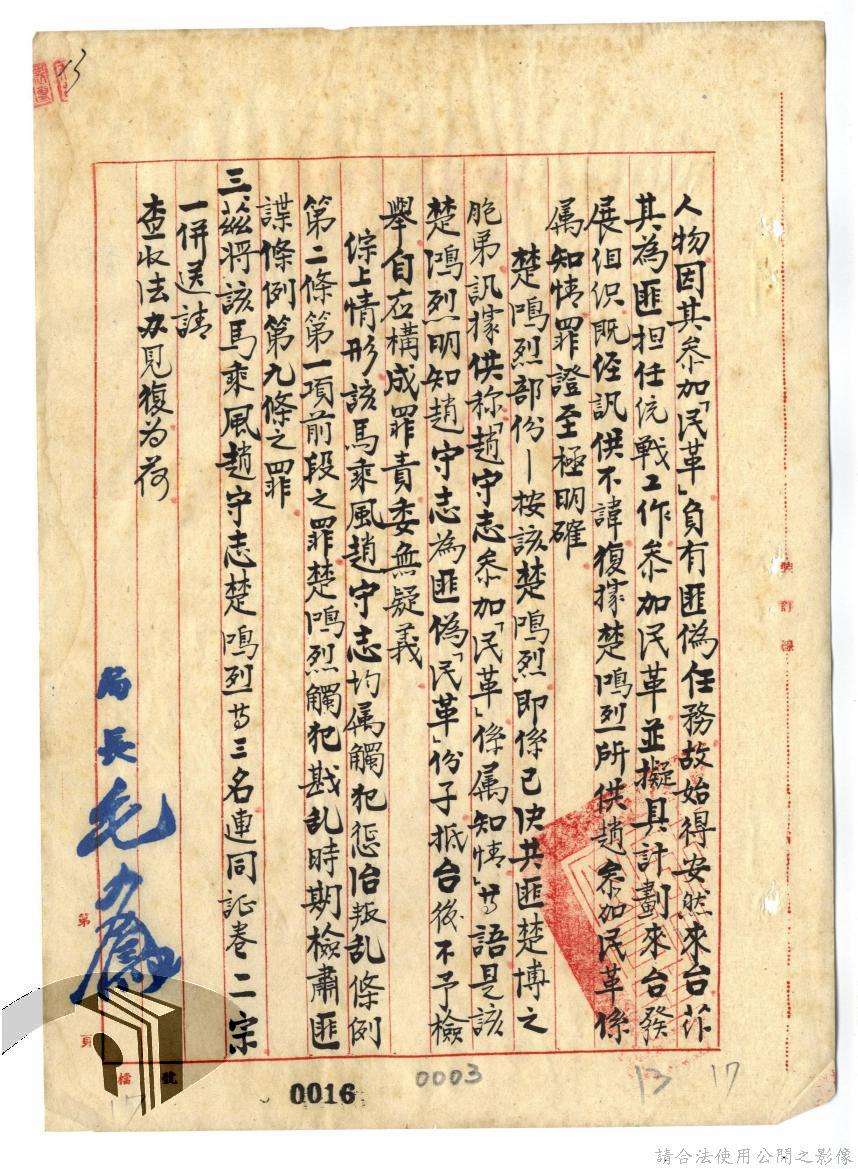 人物因其參加「民革」負有匪偽任務故始得安然來台
其為匪担任統戰工作參加民革並擬具計劃來台發
展组织既经訊供不諱復據楚鳴烈所供趙參加民革係
属知情罪證至極明確
楚鳴烈部份—按該楚鳴烈即係已决共匪楚博之
胞弟訊據供称「趙守志參加「民革」係属知情」等語是該
楚鳴烈明知趙守志為匪偽「民革」份子抵台後不予檢
舉自应構成罪責委無疑義
综上情形該馬乘風趙守志均属觸犯惩治叛乱條例
第二條第一項前段之罪楚鳴烈觸犯戡乱時期檢肅匪
諜條例第九條之罪
三茲将該馬乘風趙守志楚鳴烈等三名連同証卷二宗
一併送請
查收法办見復為荷
局長毛
裝訂線
第 頁
檔 號
13
0016
0003
13 17
17
請合法使用公開之影像